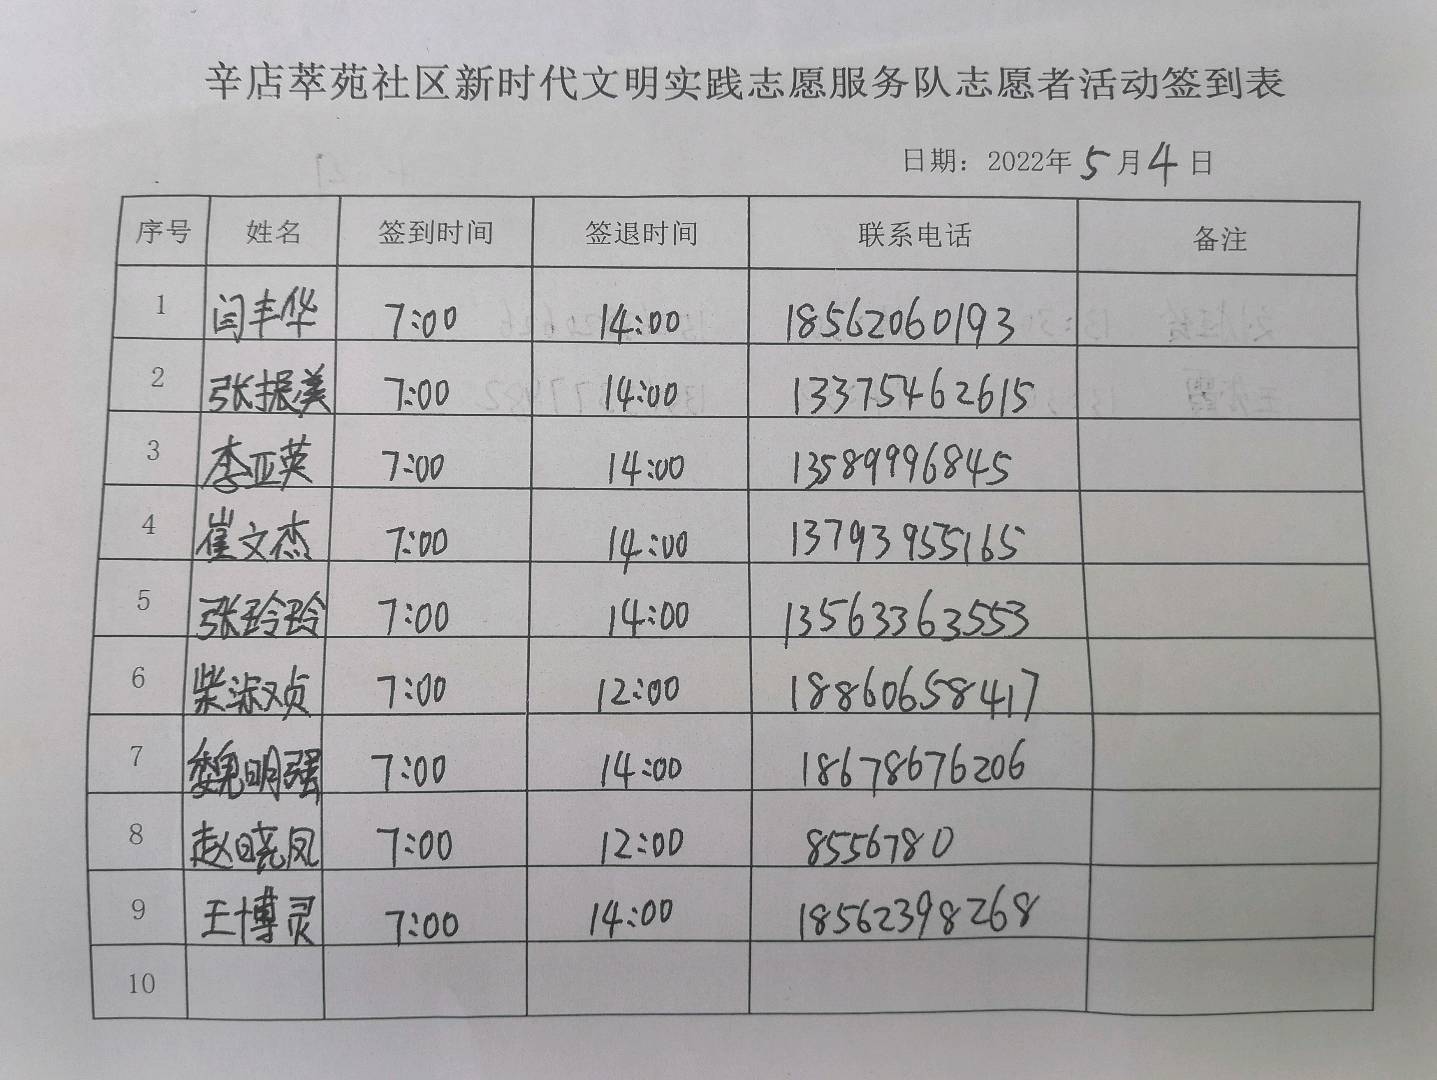 辛店萃苑社区新时代文明实践志愿服务队志愿者活动签到表
日期：2022年5月4日
序号 姓名 签到时间 签退时间 联系电话 备注
1 闫丰华 7:00 14:00 18562060193
2 张振美 7:00 14:00 13375462615
3 李亚英 7:00 14:00 13589996845
4 崔文杰 7:00 14:00 13793955165
5 张玲玲 7:00 14:00 13563363553
6 柴淑贞 7:00 12:00 18860658417
7 魏明强 7:00 14:00 18678676206
8 赵晓凤 7:00 12:00 8556780
9 王博灵 7:00 14:00 18562398268
10